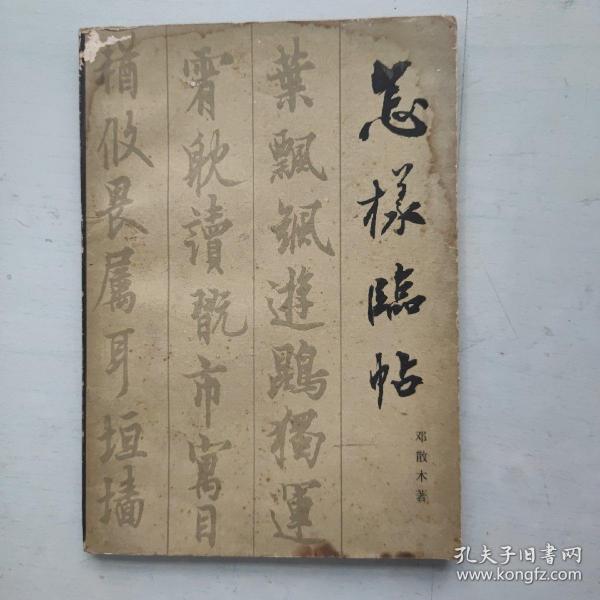 怎樣臨帖
邓散木著
葉飄颻遊鵾獨運
霄耽讀翫市寓目
猶攸畏属耳垣墻
孔夫子旧书网
www.kongfz.com